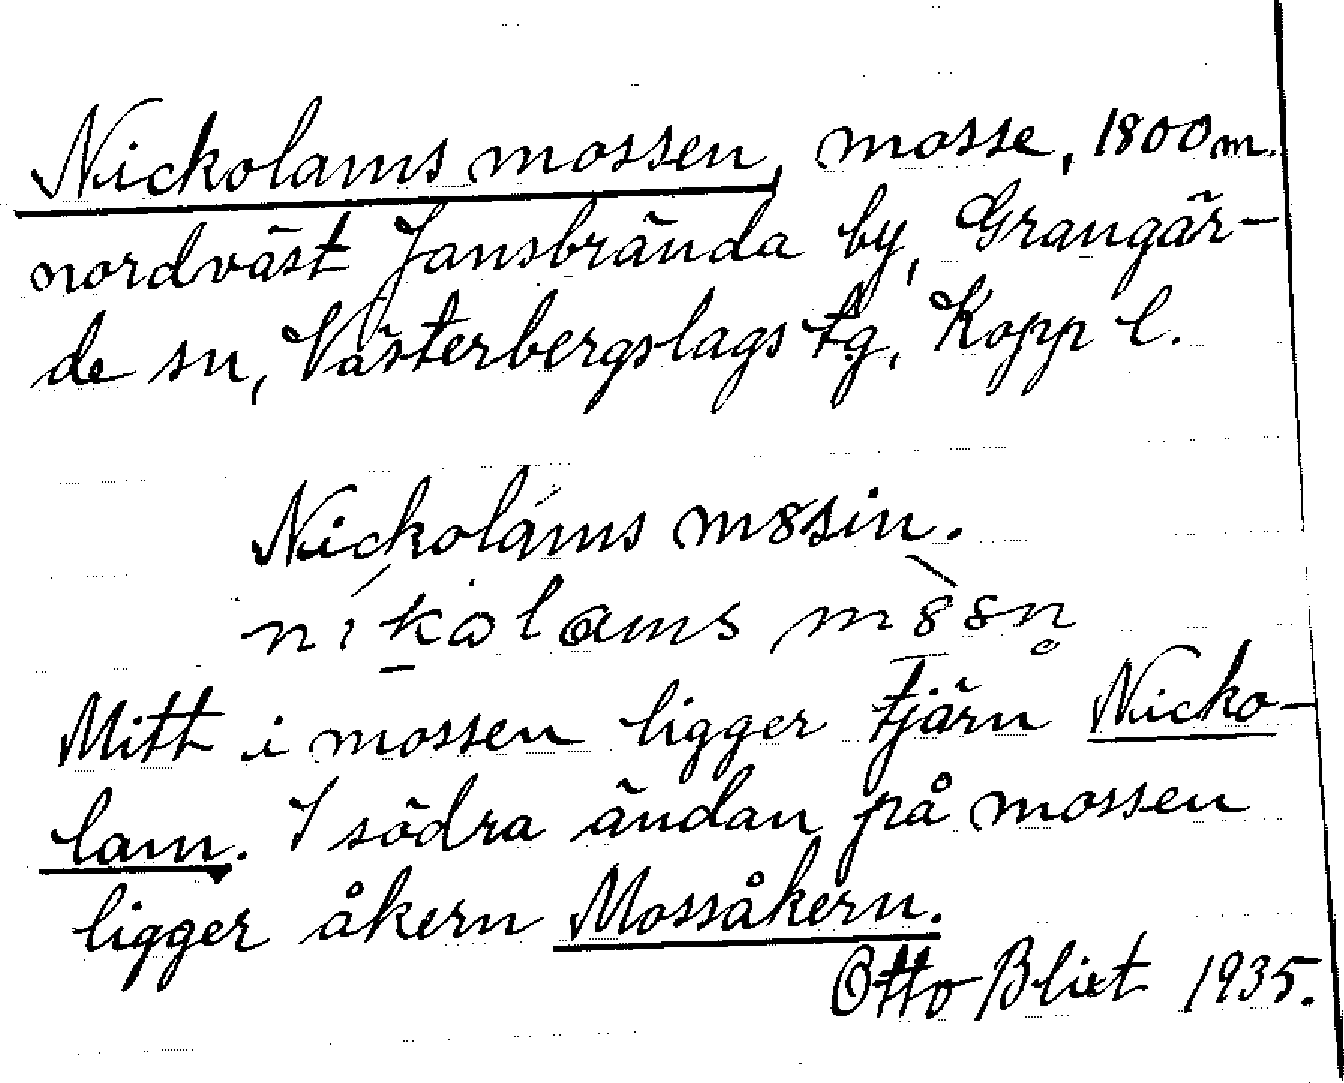 Nickolams mossen, mosse, 1800 m.
nordväst Jansbrända by, Grangär-
de sn, Västerbergslags tg, Kopp l.
Nickoláms m8sin.
mossen
Mitt i mossen ligger tjärn Nicko-
lam. I södra ändan på mossen
ligger åkern Mossåkern.
Otto Blixt 1935.